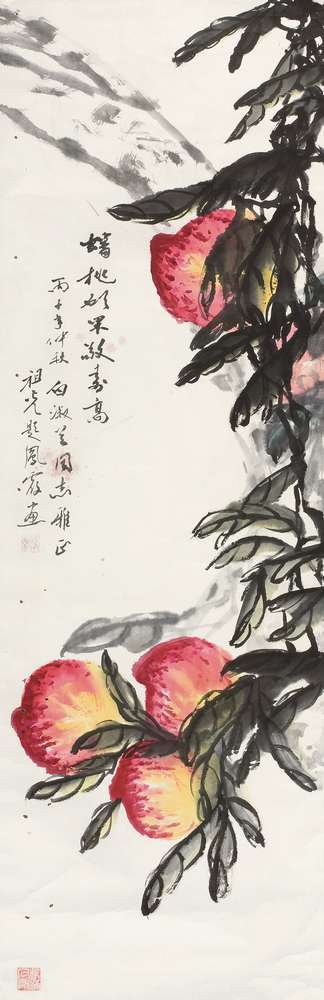 蟠桃硕果敬寿高
丙子年仲秋 白淑兰同志雅正
祖光题凤霞画